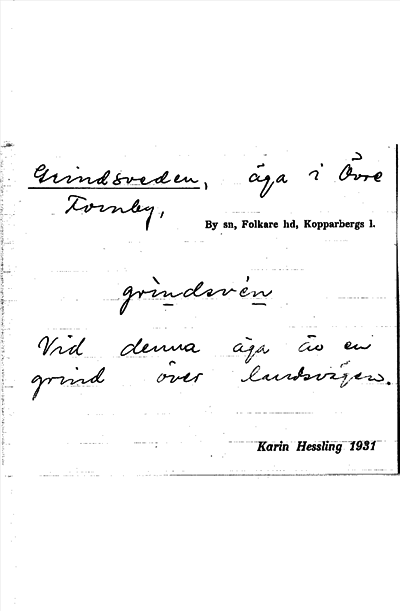 Grindsveden, äga i Övre
Fornby,
By sn, Folkare hd, Kopparbergs l.
grìndsvén
Vid denna äga äv en
grind över landsvägen.
Karin Hessling 1931